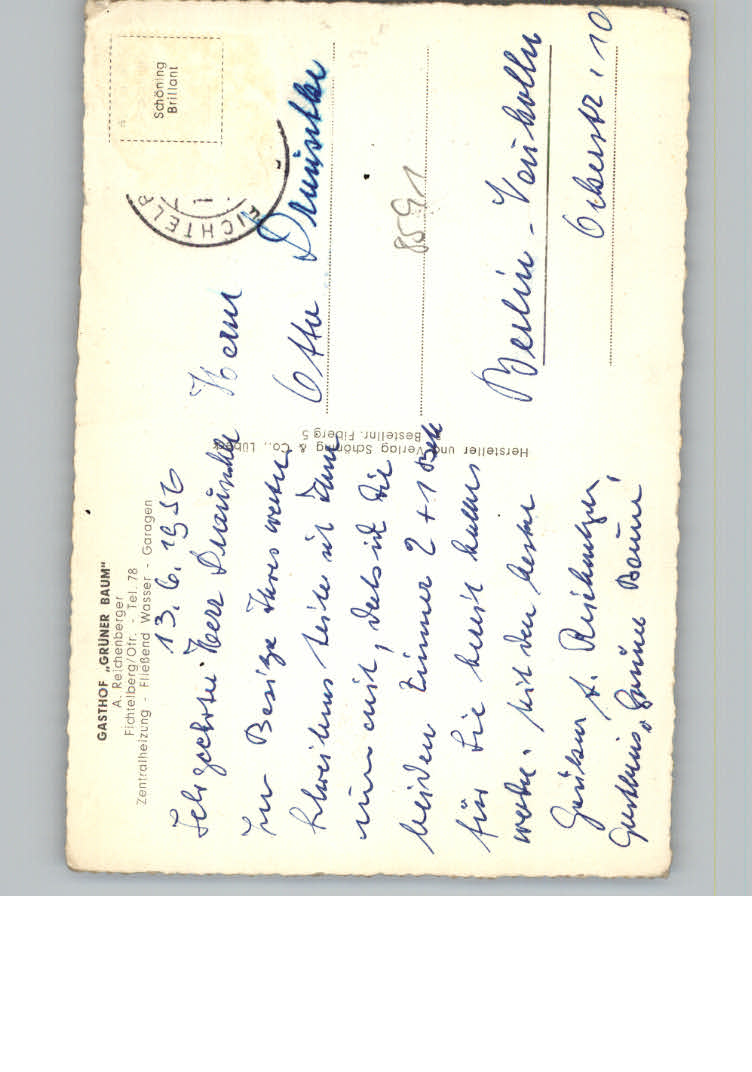 GASTHOF „GRÜNER BAUM"
A. Reichenberger
Fichtelberg/Ofr. - Tel. 78
Zentralheizung - Fließend Wasser - Garagen
13. 6. 1956
Sehr geehrter Herr
Im Besitze Ihres werten
Schreibens teile ich Ihnen
nun mit, daß ich die
beiden Zimmer 2 + 1 Bett
für Sie bereit halten
werde. Mit den besten
Grüßen A. Reichenberger
Gasthaus „Grüner Baum"
Hersteller und Verlag Schöning & Co., Lübeck
Bestellnr. Fiberg 5
Schöning
Brillant
FICHTELB
Herrn
Otto
8591
Berlin - Neukölln
10